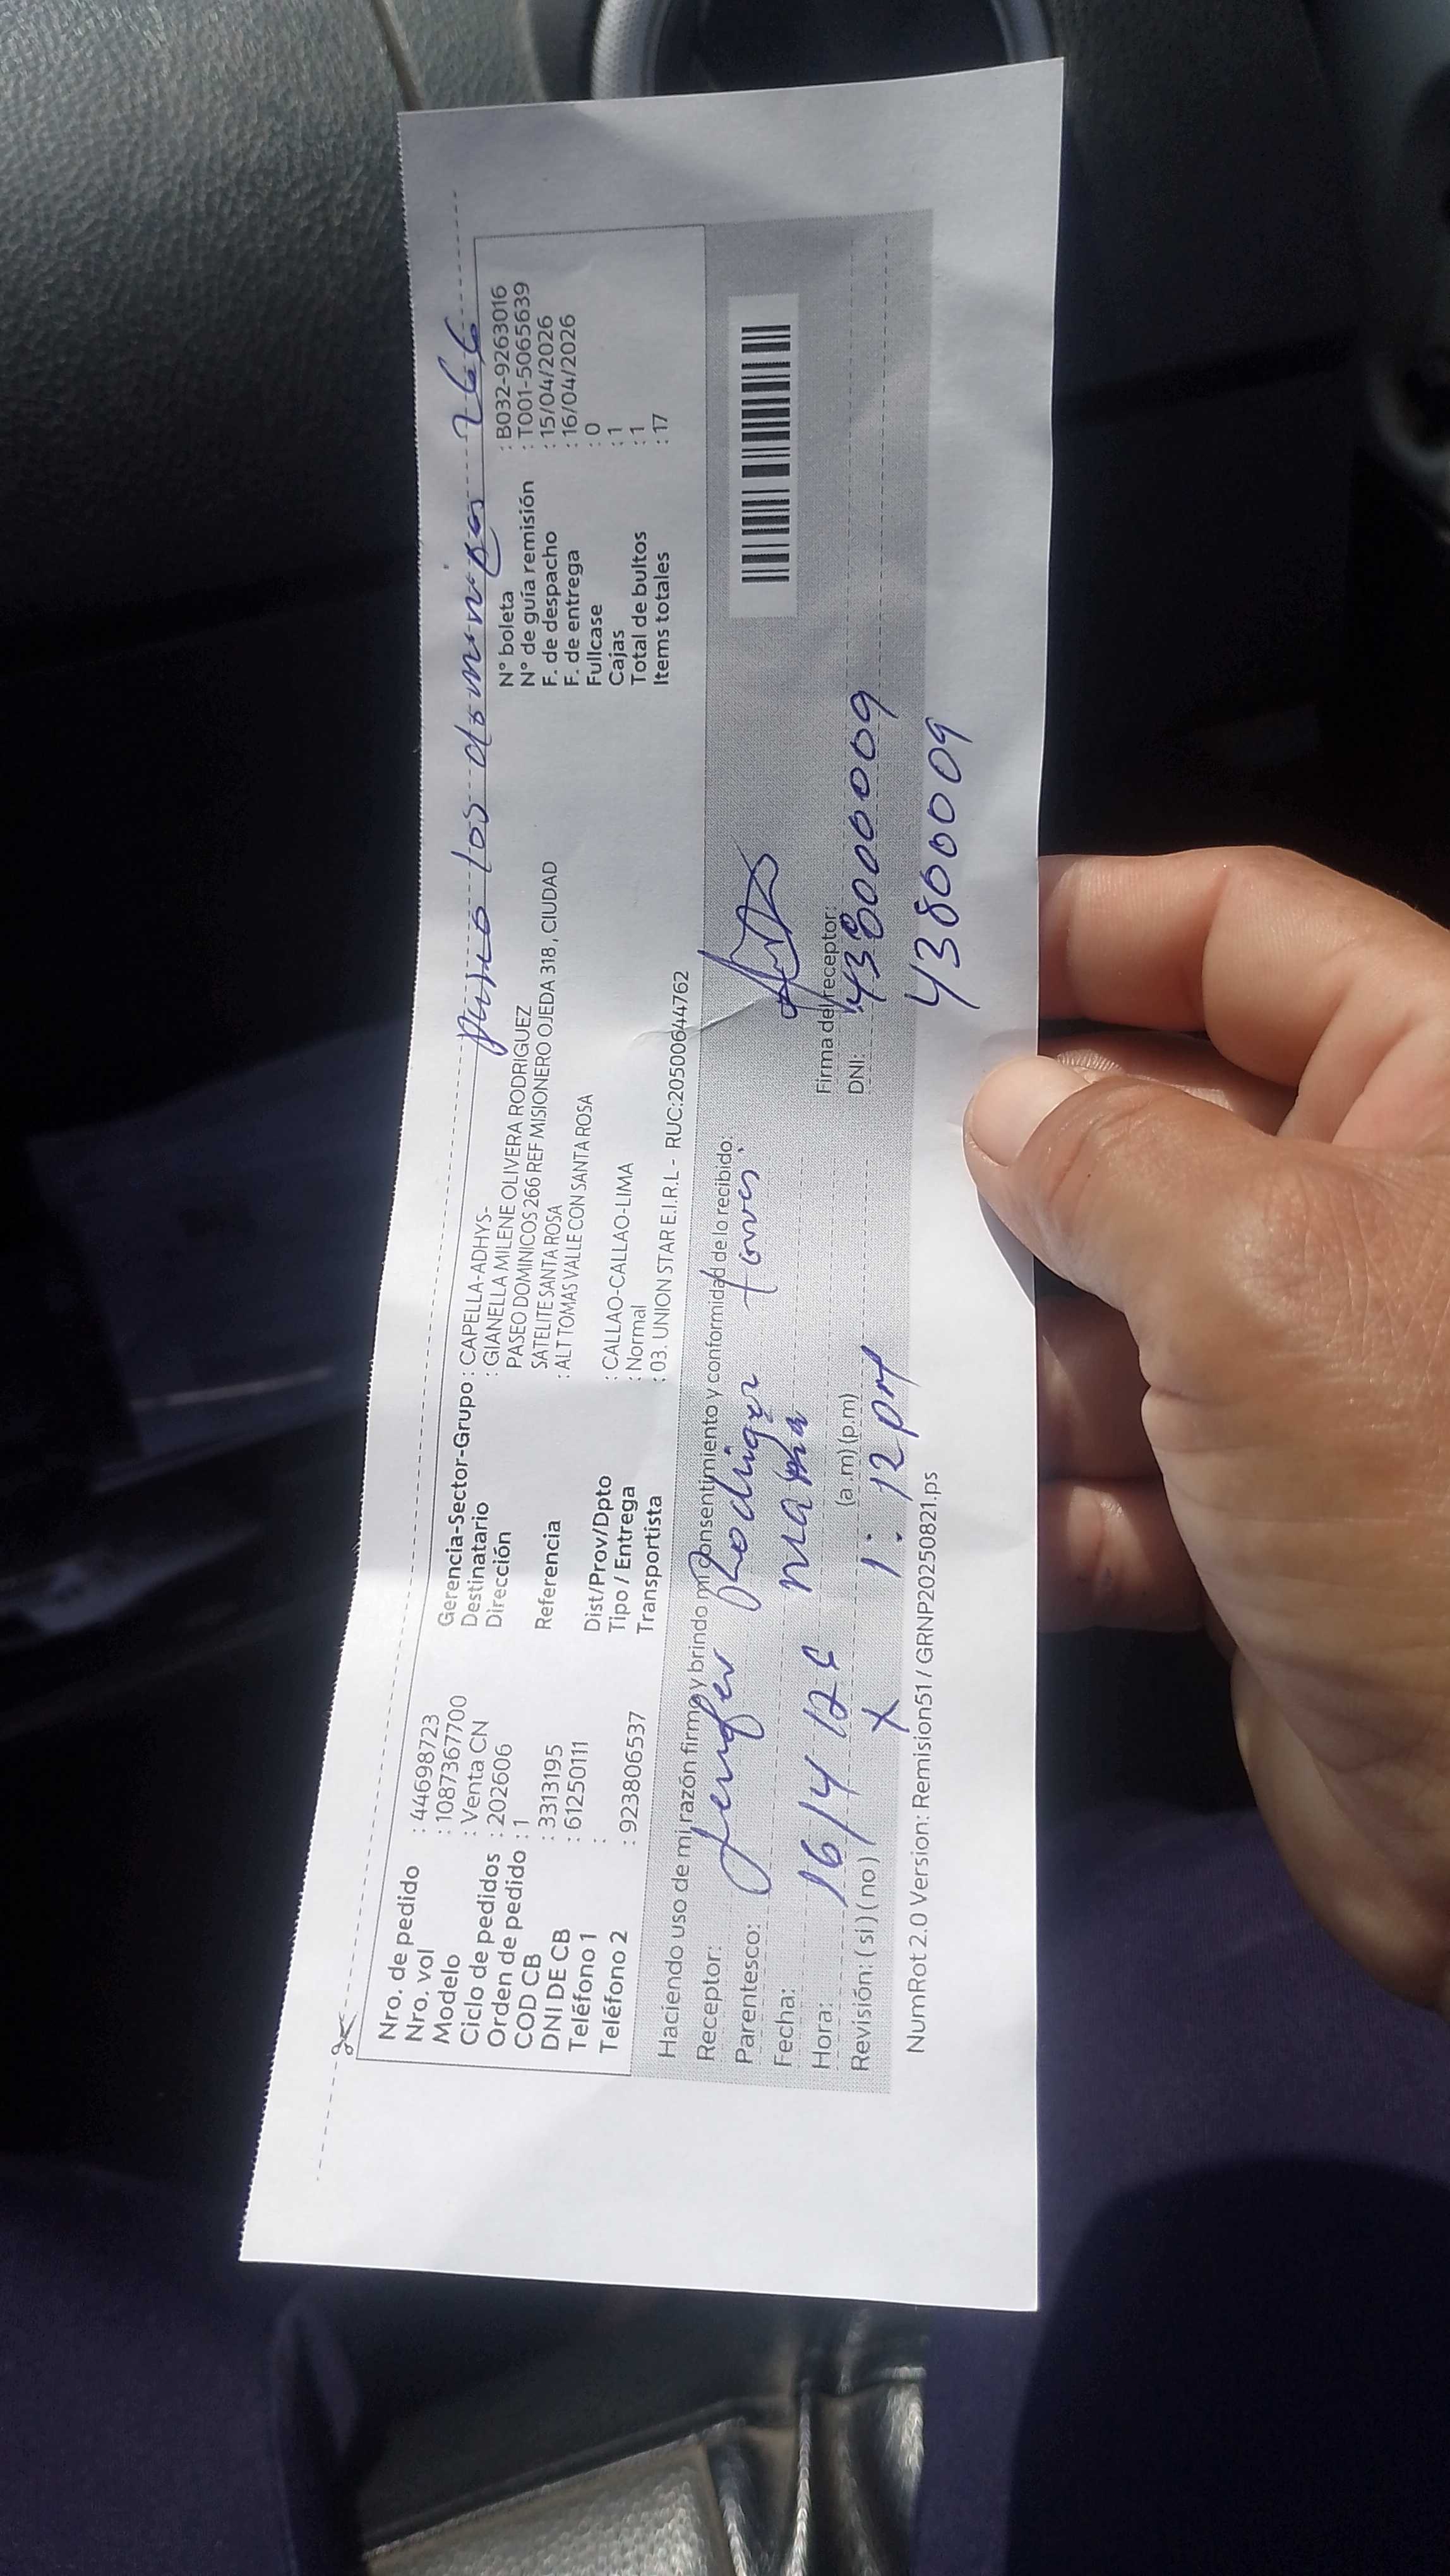 paseo los dominicos 266
Nro. de pedido : 44698723
Nro. vol : 1087367700
Modelo : Venta CN
Ciclo de pedidos : 202606
Orden de pedido : 1
COD CB : 3313195
DNI DE CB : 61250111
Teléfono 1 :
Teléfono 2 : 923806537
Gerencia-Sector-Grupo : CAPELLA-ADHYS-
Destinatario : GIANELLA MILENE OLIVERA RODRIGUEZ
Dirección PASEO DOMINICOS 266 REF MISIONERO OJEDA 318 , CIUDAD
SATELITE SANTA ROSA
Referencia : ALT TOMAS VALLE CON SANTA ROSA
Dist/Prov/Dpto : CALLAO-CALLAO-LIMA
Tipo / Entrega : Normal
Transportista : 03. UNION STAR E.I.R.L - RUC:20500644762
N° boleta : B032-9263016
N° de guía remisión : T001-5065639
F. de despacho : 15/04/2026
F. de entrega : 16/04/2026
Fullcase : 0
Cajas : 1
Total de bultos : 1
Items totales : 17
Haciendo uso de mi razón firmo y brindo mi consentimiento y conformidad de lo recibido.
Receptor: Rodriguez
Parentesco: mama
Fecha: 16/4
Hora: (a.m) (p.m) 1:12 pm
Revisión: ( si ) ( no ) X
Firma del receptor:
DNI: 43800009
43800009
NumRot 2.0 Version: Remision51 / GRNP20250821.ps